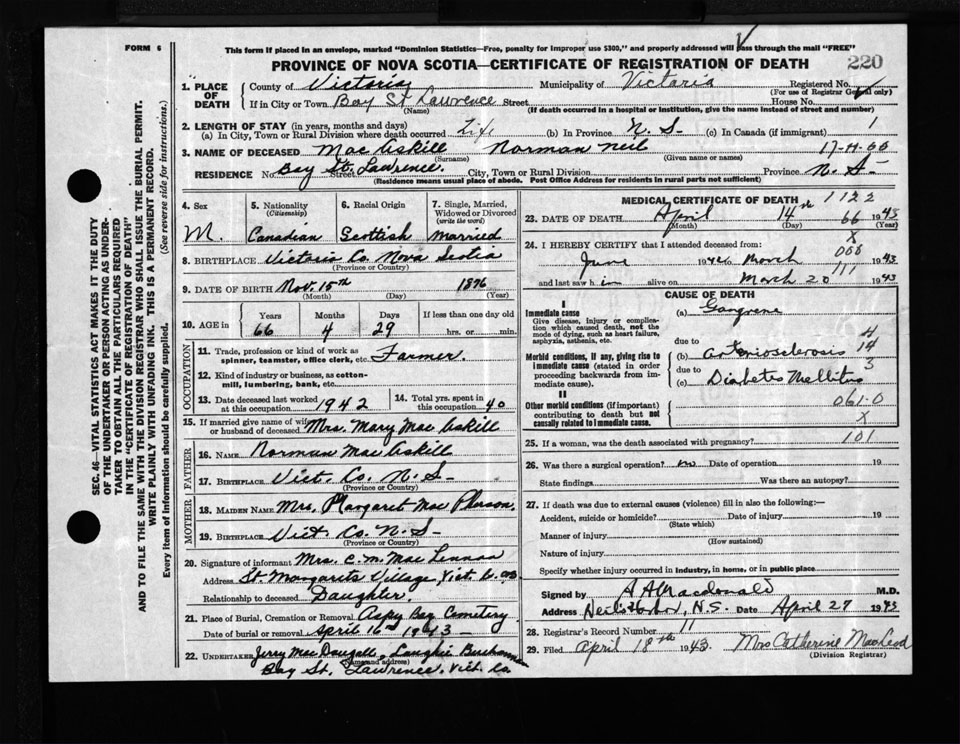 FORM 6
This form if placed in an envelope, marked "Dominion Statistics—Free, penalty for improper use $300," and properly addressed will pass through the mail "FREE"
PROVINCE OF NOVA SCOTIA—CERTIFICATE OF REGISTRATION OF DEATH 220
1. PLACE OF DEATH County of Victoria Municipality of Victoria Registered No.
(For use of Registrar General only)
If in City or Town Bay St Lawrence Street House No.
(Name) (If death occurred in a hospital or institution, give the name instead of street and number)
2. LENGTH OF STAY (in years, months and days) 1
(a) In City, Town or Rural Division where death occurred Life (b) In Province N. S- (c) In Canada (if immigrant)
3. NAME OF DECEASED MacAskill Norman Neil
(Surname) (Given name or names)
RESIDENCE No. Bay St. Lawrence. Street City, Town or Rural Division Province N. S-
(Residence means usual place of abode. Post Office Address for residents in rural parts not sufficient)
4. Sex M.
5. Nationality (Citizenship) Canadian
6. Racial Origin Scottish
7. Single, Married, Widowed or Divorced (write the word) Married
8. BIRTHPLACE Victoria Co. Nova Scotia
(Province or Country)
9. DATE OF BIRTH Nov. 15th 1876
(Month) (Day) (Year)
10. AGE in Years Months Days If less than one day old
66 4 29 hrs. or min.
OCCUPATION
11. Trade, profession or kind of work as spinner, teamster, office clerk, etc. Farmer.
12. Kind of industry or business, as cotton-mill, lumbering, bank, etc.
13. Date deceased last worked at this occupation 1942
14. Total yrs. spent in this occupation 40
15. If married give name of wife or husband of deceased Mrs. Mary MacAskill
FATHER
16. NAME Norman MacAskill
17. BIRTHPLACE Vict. Co. N. S-
(Province or Country)
MOTHER
18. MAIDEN NAME Mrs. Margaret MacPherson.
19. BIRTHPLACE Vict Co. N. S-
(Province or Country)
20. Signature of informant Mrs. C. M. MacLennan
Address St. Margarets Village, Vict. Co.
Relationship to deceased Daughter.
21. Place of Burial, Cremation or Removal Aspy Bay Cemetery
Date of burial or removal April 16th 1943-
22. Undertaker Jerry MacDougall, Laughie Buchanan
(Name and address)
Bay St. Lawrence, Vict. Co.
MEDICAL CERTIFICATE OF DEATH 1122
23. DATE OF DEATH April 14th 66 1943
(Month) (Day) (Year)
24. I HEREBY CERTIFY that I attended deceased from: X
June 1942 to March 1943
and last saw him alive on March 20 1943
111
CAUSE OF DEATH
I
Immediate cause (a) Gangrene
Give disease, injury or complication which caused death, not the mode of dying, such as heart failure, asphyxia, asthenia, etc.
due to 4
Morbid conditions, if any, giving rise to immediate cause (stated in order proceeding backwards from immediate cause). (b) Arteriosclerosis 14
due to 3
(c) Diabetes Mellitus
II
Other morbid conditions (if important) contributing to death but not causally related to immediate cause. 061-0
X
25. If a woman, was the death associated with pregnancy? 101
26. Was there a surgical operation? no Date of operation 19
State findings Was there an autopsy?
27. If death was due to external causes (violence) fill in also the following:—
Accident, suicide or homicide? Date of injury 19
(State which)
Manner of injury
(How sustained)
Nature of injury
Specify whether injury occurred in industry, in home, or in public place
Signed by A A Macdonald M.D.
Address Neils Harbor, N.S. Date April 27 1943
28. Registrar's Record Number 11
29. Filed April 18th 1943. Mrs Catherine MacLeod
(Division Registrar)
SEC. 46—VITAL STATISTICS ACT MAKES IT THE DUTY
OF THE UNDERTAKER OR PERSON ACTING AS UNDER-
TAKER TO OBTAIN ALL THE PARTICULARS REQUIRED
IN THE "CERTIFICATE OF REGISTRATION OF DEATH"
AND TO FILE THE SAME WITH THE DIVISION REGISTRAR WHO SHALL ISSUE THE BURIAL PERMIT.
WRITE PLAINLY WITH UNFADING INK. THIS IS A PERMANENT RECORD.
Every item of information should be carefully supplied. (See reverse side for instructions.)